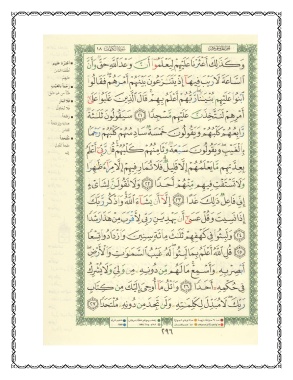 وَكَذَٰلِكَ أَعْثَرْنَا عَلَيْهِمْ لِيَعْلَمُوٓا۟ أَنَّ وَعْدَ ٱللَّهِ حَقٌّ وَأَنَّ
ٱلسَّاعَةَ لَا رَيْبَ فِيهَآ إِذْ يَتَنَـٰزَعُونَ بَيْنَهُمْ أَمْرَهُمْ فَقَالُوا۟
ٱبْنُوا۟ عَلَيْهِم بُنْيَـٰنًا رَّبُّهُمْ أَعْلَمُ بِهِمْ قَالَ ٱلَّذِينَ غَلَبُوا۟ عَلَىٰٓ
أَمْرِهِمْ لَنَتَّخِذَنَّ عَلَيْهِم مَّسْجِدًا ۝٢١ سَيَقُولُونَ ثَلَـٰثَةٌ
رَّابِعُهُمْ كَلْبُهُمْ وَيَقُولُونَ خَمْسَةٌ سَادِسُهُمْ كَلْبُهُمْ رَجْمًۢا
بِٱلْغَيْبِ وَيَقُولُونَ سَبْعَةٌ وَثَامِنُهُمْ كَلْبُهُمْ قُل رَّبِّىٓ أَعْلَمُ
بِعِدَّتِهِم مَّا يَعْلَمُهُمْ إِلَّا قَلِيلٌ فَلَا تُمَارِ فِيهِمْ إِلَّا مِرَآءً ظَـٰهِرًا
وَلَا تَسْتَفْتِ فِيهِم مِّنْهُمْ أَحَدًا ۝٢٢ وَلَا تَقُولَنَّ لِشَا۟ىْءٍ
إِنِّى فَاعِلٌ ذَٰلِكَ غَدًا ۝٢٣ إِلَّآ أَن يَشَآءَ ٱللَّهُ وَٱذْكُر رَّبَّكَ
إِذَا نَسِيتَ وَقُلْ عَسَىٰٓ أَن يَهْدِيَنِ رَبِّى لِأَقْرَبَ مِنْ هَـٰذَا رَشَدًا
۝٢٤ وَلَبِثُوا۟ فِى كَهْفِهِمْ ثَلَـٰثَ مِا۟ئَةٍ سِنِينَ وَٱزْدَادُوا۟ تِسْعًا
۝٢٥ قُلِ ٱللَّهُ أَعْلَمُ بِمَا لَبِثُوا۟ لَهُۥ غَيْبُ ٱلسَّمَـٰوَٰتِ وَٱلْأَرْضِ
أَبْصِرْ بِهِۦ وَأَسْمِعْ مَا لَهُم مِّن دُونِهِۦ مِن وَلِىٍّ وَلَا يُشْرِكُ
فِى حُكْمِهِۦٓ أَحَدًا ۝٢٦ وَٱتْلُ مَآ أُوحِىَ إِلَيْكَ مِن كِتَابِ
رَبِّكَ لَا مُبَدِّلَ لِكَلِمَـٰتِهِۦ وَلَن تَجِدَ مِن دُونِهِۦ مُلْتَحَدًا ۝٢٧
٢٩٦